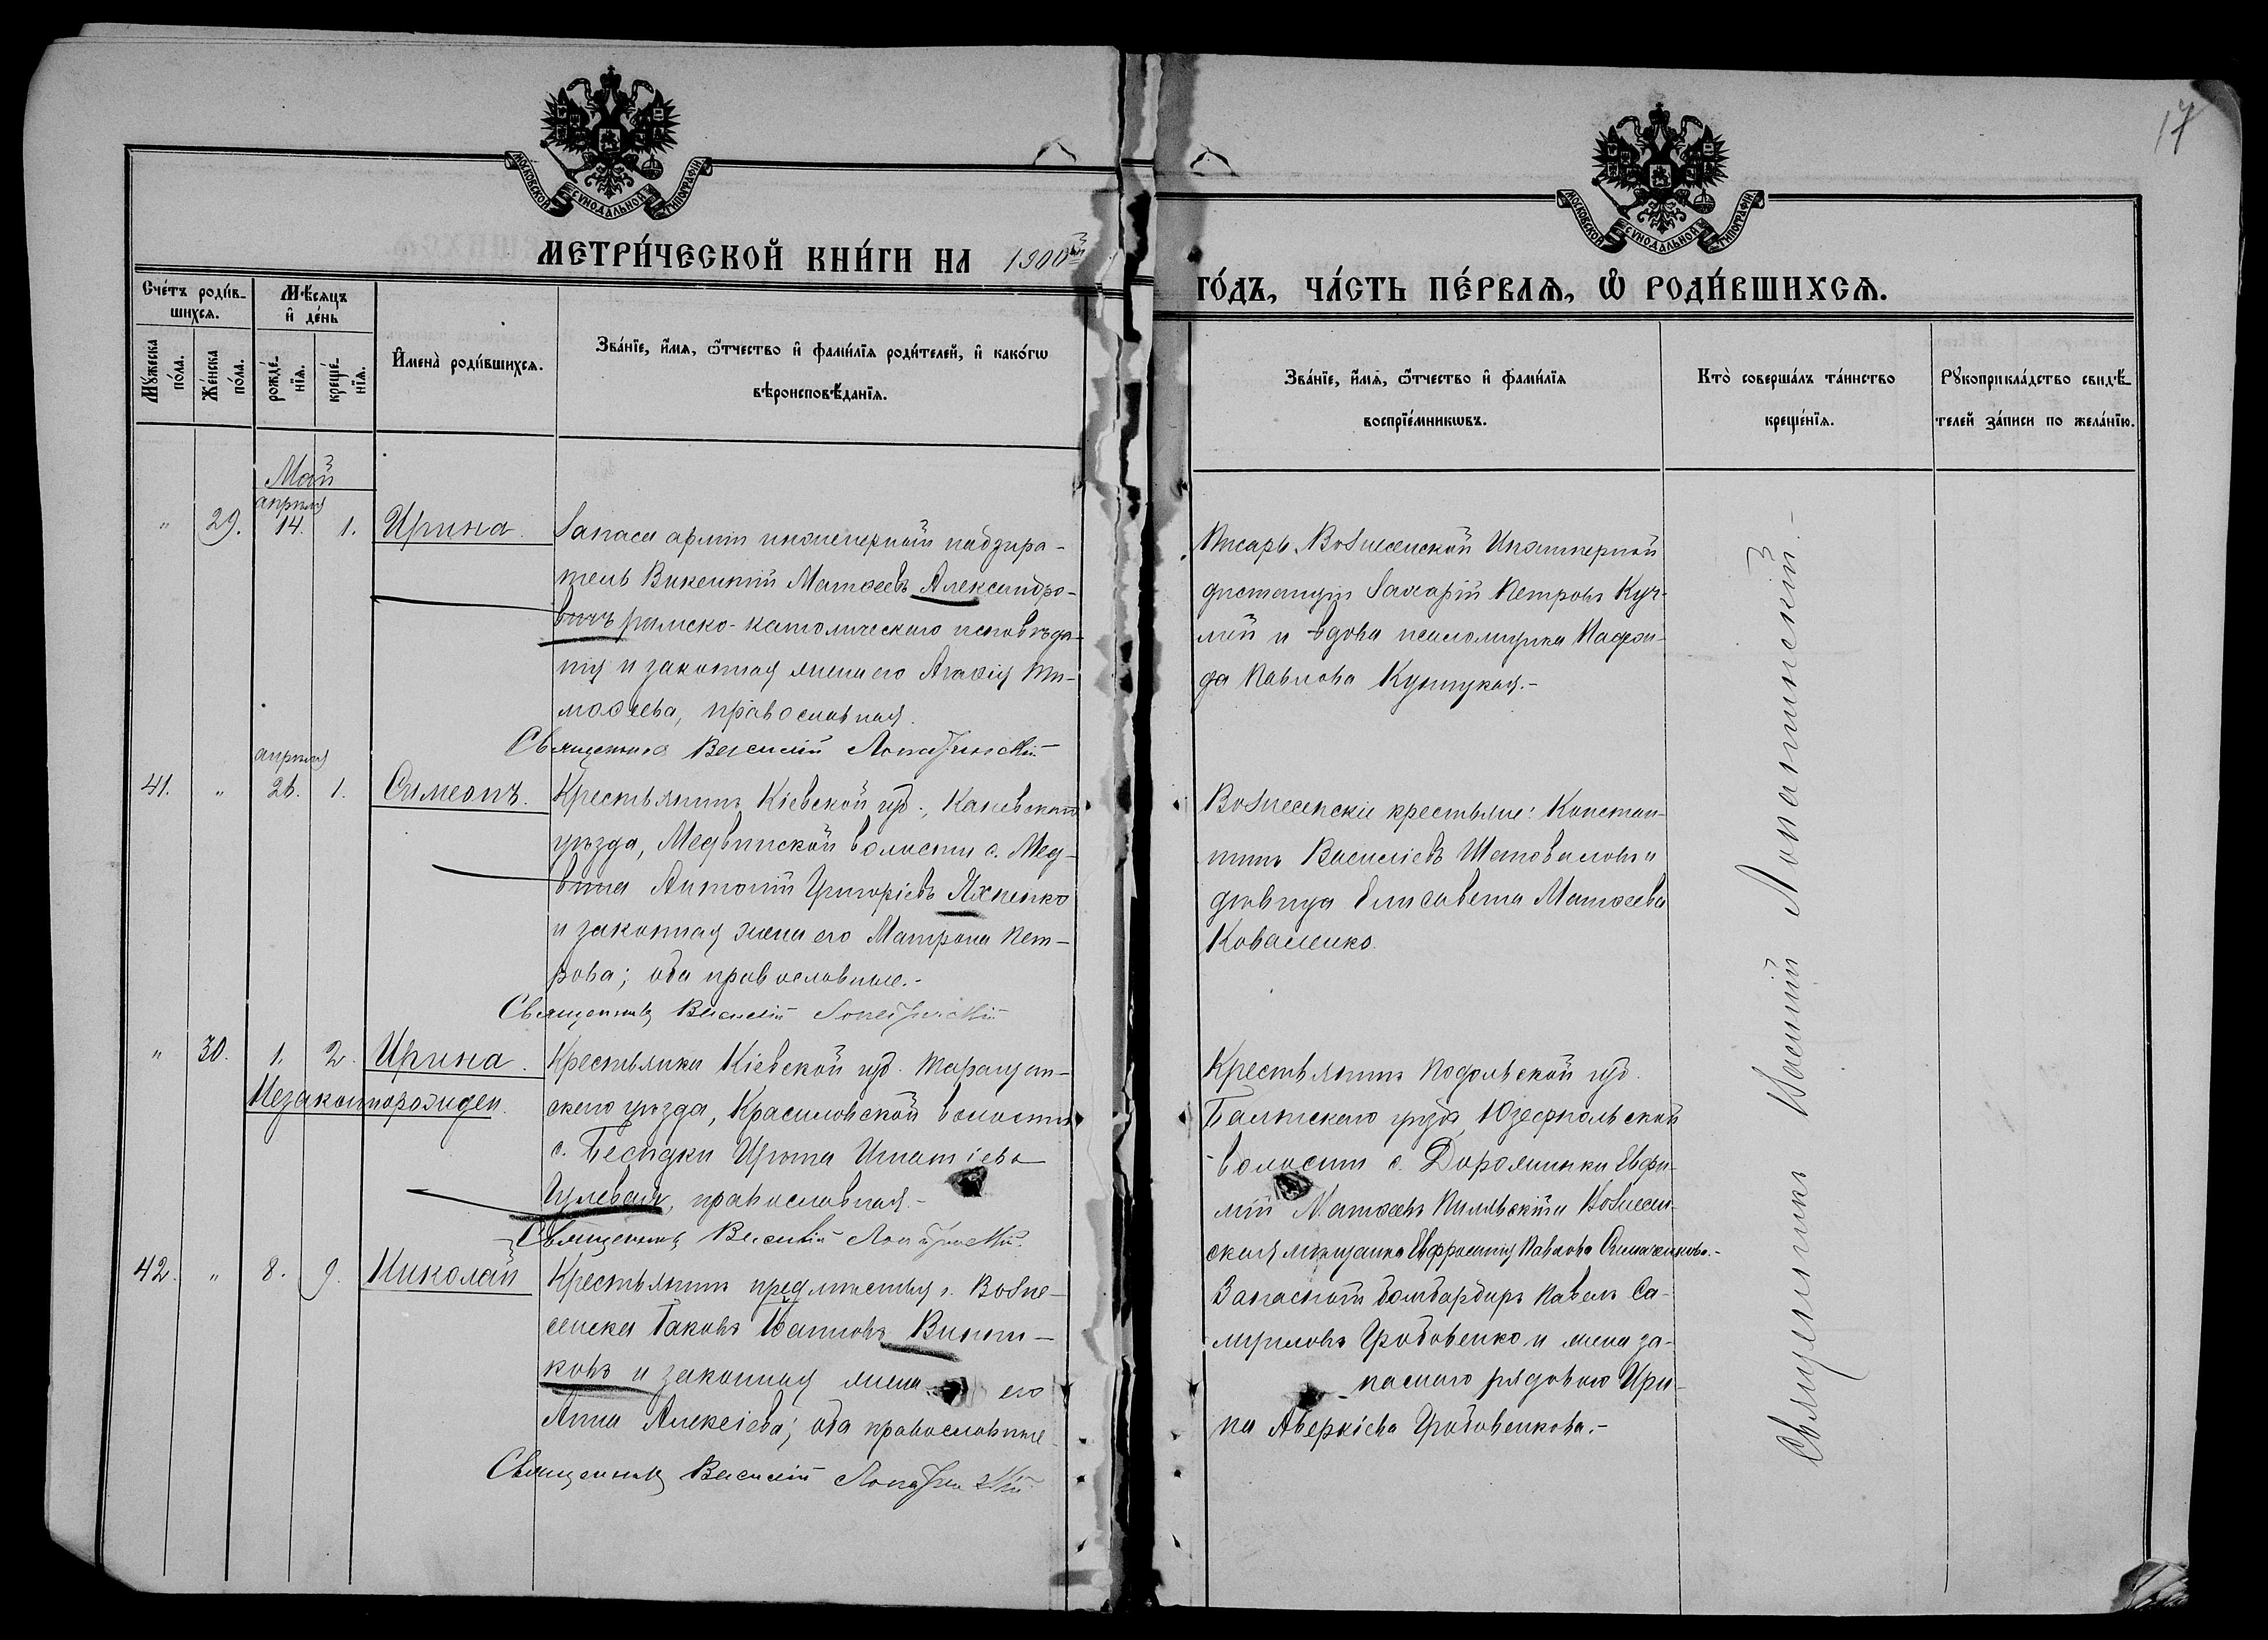 17
МОСКОВСКОЙ СѴНОДАЛЬНОЙ ТИПОГРАФІИ
МОСКОВСКОЙ СѴНОДАЛЬНОЙ ТИПОГРАФІИ
МЕТРИ́ЧЕСКОЙ КНИ́ГИ НА 1900й
ГО́ДЪ, ЧА́СТЬ ПЕ́РВАѦ, Ѿ РОДИ́ВШИХСѦ.
Сче́тъ роди́в-
шихсѧ.
Мꙋ́жеска по́ла.
Же́нска по́ла.
Мѣ́сяцъ
и҆ де́нь
рожде́-
нїѧ.
креще́-
нїѧ.
И҆мена̀ роди́вшихсѧ.
Зва́нїе, и҆́мѧ, ѻ҆́тчество и҆ фами́лїѧ роди́телей, и҆ како́гѡ
вѣроисповѣ́данїѧ.
Зва́нїе, и҆́мѧ, ѻ҆́тчество и҆ фами́лїѧ
воспрїе́мникѡвъ.
Кто̀ соверша́лъ та́инство
креще́нїѧ.
Рꙋкоприкла́дство свидѣ́-
телей за́писи по жела́нїю.
Май
апрѣля
" 29. 14. 1. Ирина. Запаса арміи инженерный надзира-
тель Викентій Матѳеевъ Александро-
вичъ римско-католическаго исповѣда-
нія и законная жена его Агаѳія Ти-
моѳеева, православная.
Священникъ Василій Лопатинскій
Писарь Вознесенской Инженерной
дистанціи Захарій Петровъ Куч-
мій и вдова псаломщика
Павлова
апрѣля
41. " 26. 1. Симеонъ. Крестьянинъ Кіевской губ., Каневскаго
уѣзда, Медвинской волости с. Мед-
вина Антоній Григоріевъ Яхненко
и законная жена его Матрона Пет-
рова; оба православные.-
Священникъ Василій Лопатинскій
Вознесенскіе крестьяне: Констан-
тинъ Василіевъ Шаповаловъ и
дѣвица Елисавета Матѳеева
Коваленко.
" 30. 1. 2. Ирина. Крестьянка Кіевской губ. Таращан-
Незаконнорожден. скаго уѣзда, Красиловской волости
с. Бесѣдки Ирина Игнатіева
Гулевая, православная.-
Священникъ Василій Лопатинскій.
Крестьянинъ Подольской губ.
Балтскаго уѣзда, Юзефпольской
волости с. Дорожинки Евфи-
мій Матѳеевъ и Вознесен-
ская мѣщанка Евфросинія Павлова
42. " 8. 9. Николай Крестьянинъ предмѣстья г. Возне-
сенска Іаковъ Іоанновъ Винни-
ковъ и законная жена его
Анна Алексіева; оба православные
Священникъ Василій Лопатинскій
Запасной бомбардиръ Павелъ Са-
муиловъ Гробовенко и жена за-
паснаго рядового Ири-
на Аверкіева Гробовенкова.-
Священникъ Василій Лопатинскій.-